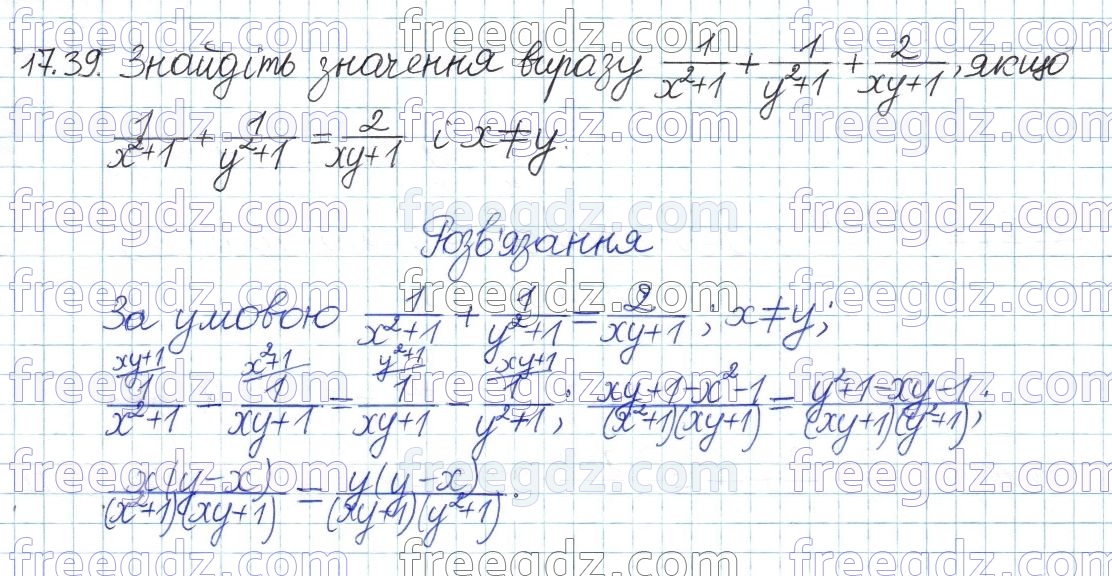 17.39. Знайдіть значення виразу 1/(x²+1) + 1/(y²+1) + 2/(xy+1), якщо
1/(x²+1) + 1/(y²+1) = 2/(xy+1) і x≠y.
Розв'язання
За умовою 1/(x²+1) + 1/(y²+1) = 2/(xy+1); x≠y;
xy+1/ x²+1/ y²+1/ xy+1/
1/(x²+1) - 1/(xy+1) = 1/(xy+1) - 1/(y²+1); (xy+1-x²-1)/((x²+1)(xy+1)) = (y²+1-xy-1)/((xy+1)(y²+1));
x(y-x)/((x²+1)(xy+1)) = y(y-x)/((xy+1)(y²+1)).
freegdz.com